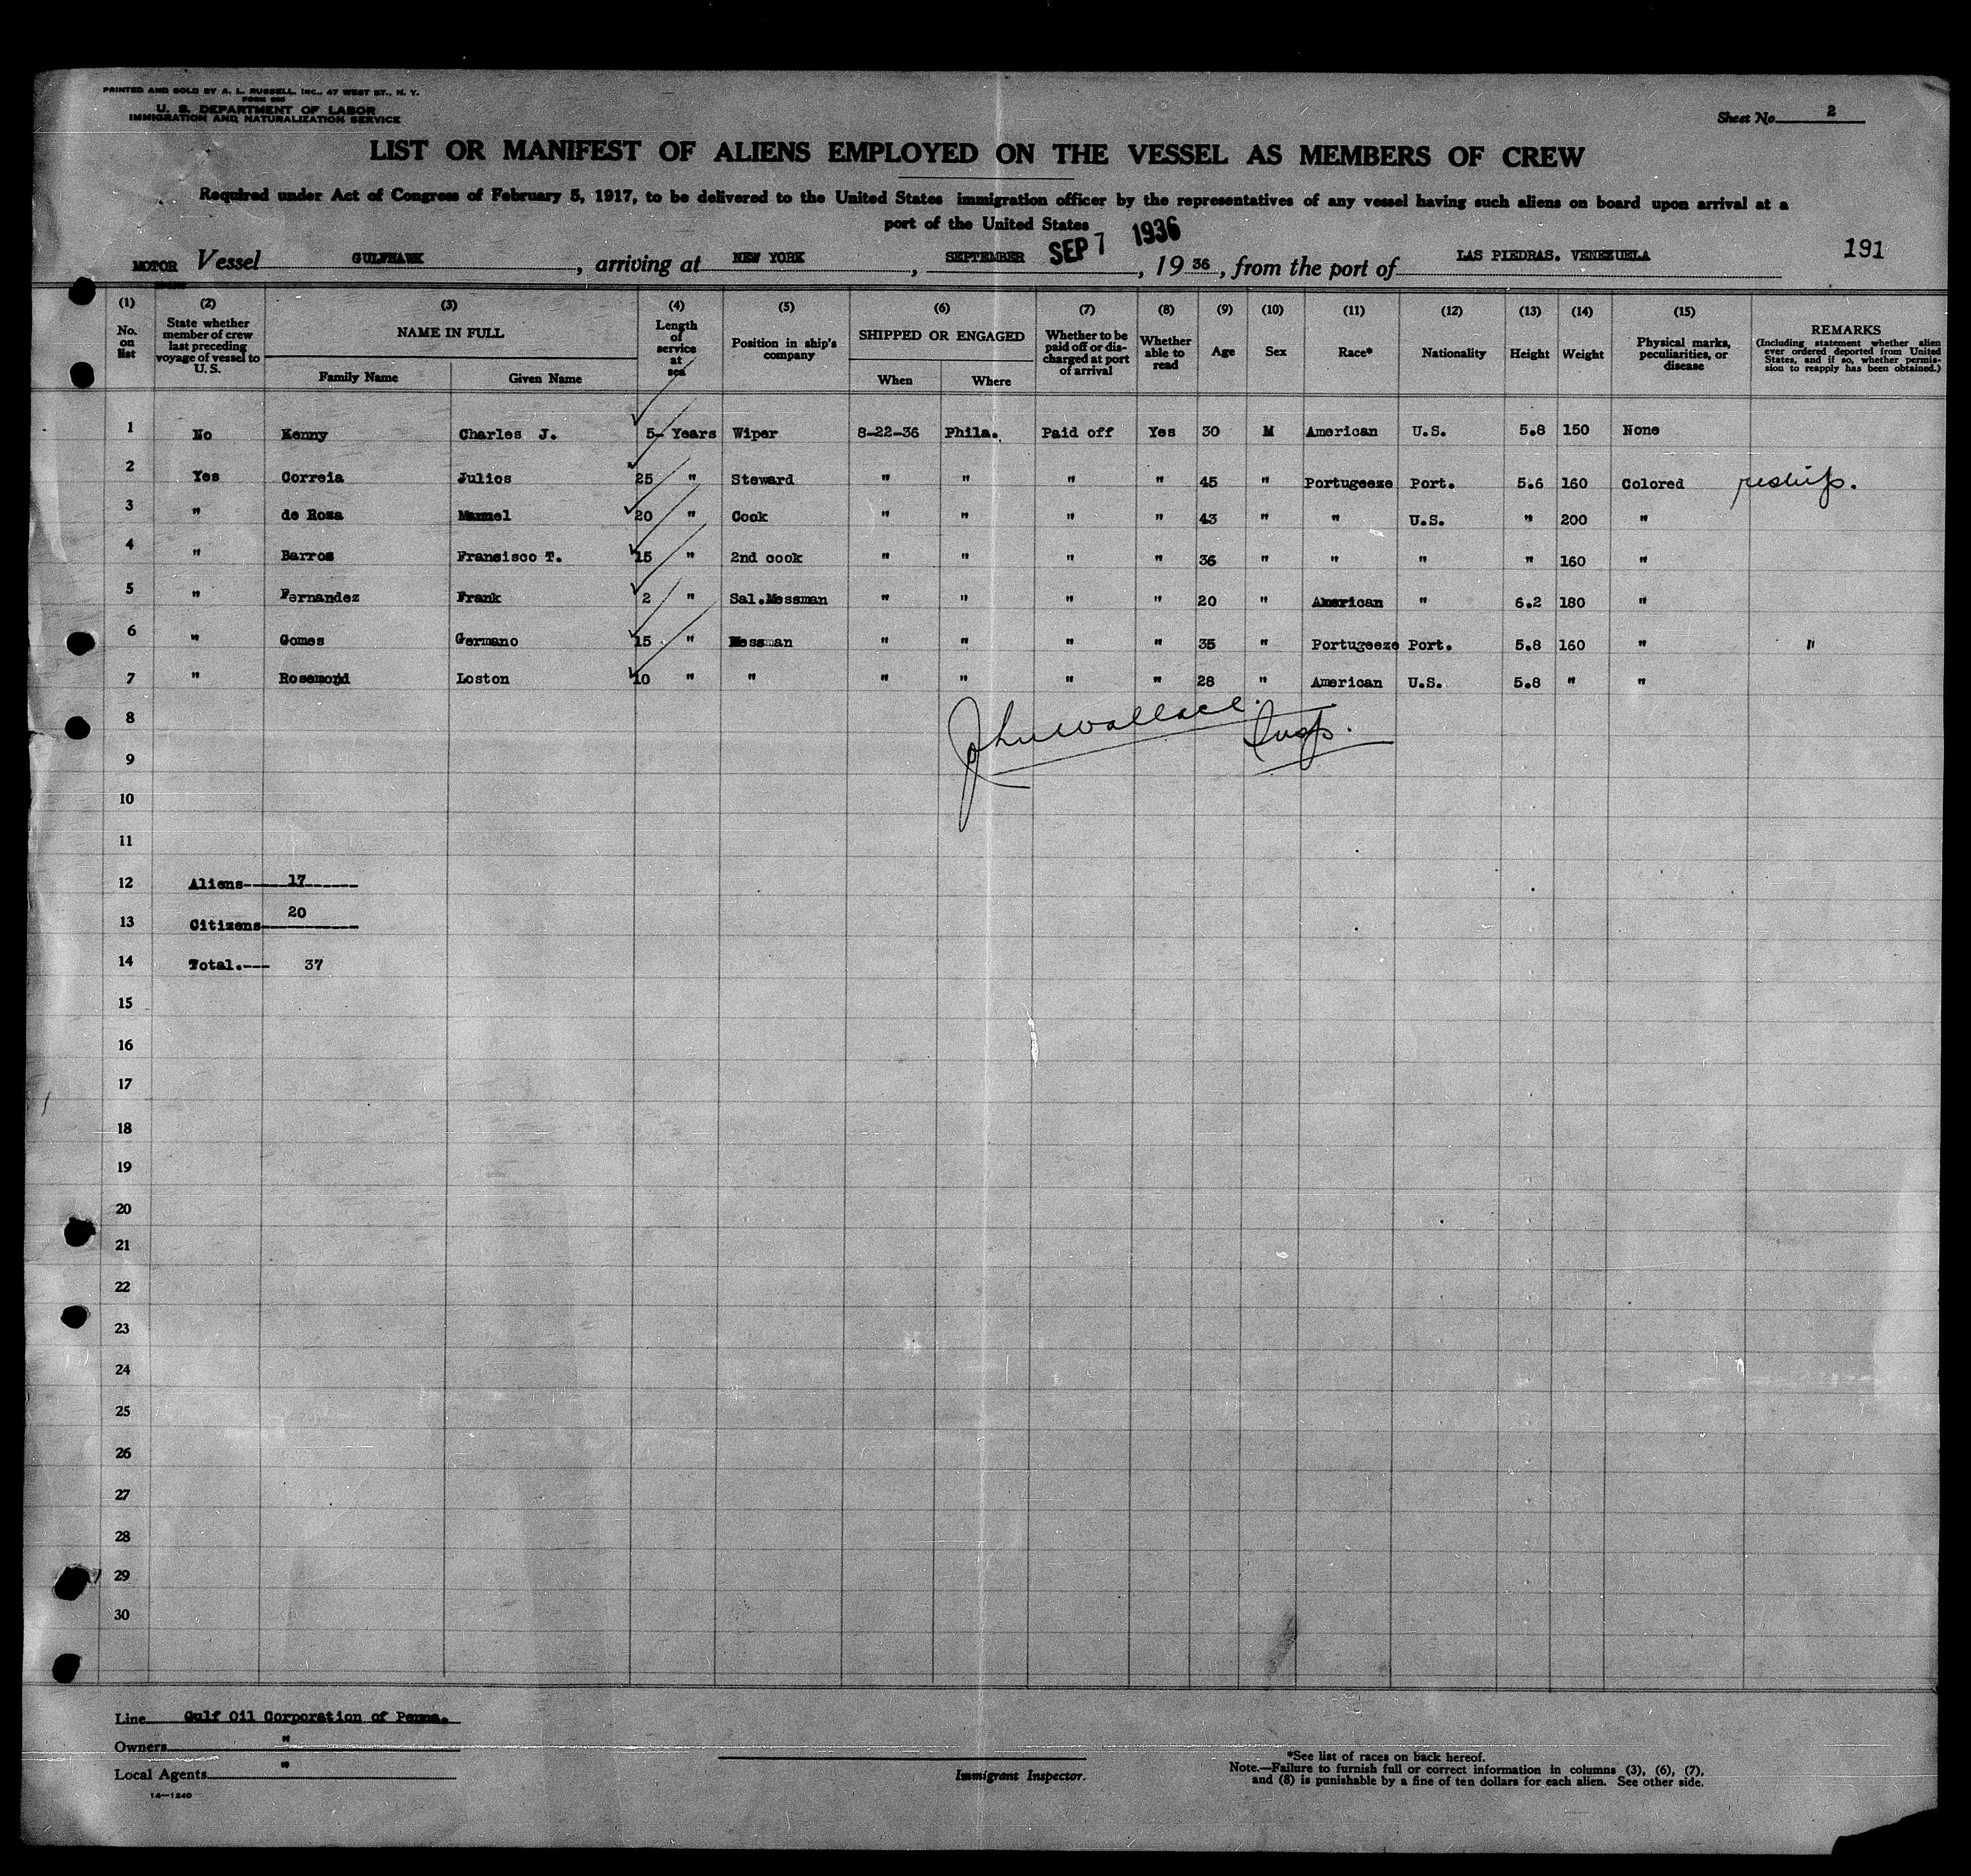 PRINTED AND SOLD BY A. L. RUSSELL, INC., 47 WEST ST., N. Y.
U. S. DEPARTMENT OF LABOR
IMMIGRATION AND NATURALIZATION SERVICE
Sheet No. 2
LIST OR MANIFEST OF ALIENS EMPLOYED ON THE VESSEL AS MEMBERS OF CREW
Required under Act of Congress of February 5, 1917, to be delivered to the United States immigration officer by the representatives of any vessel having such aliens on board upon arrival at a
port of the United States
MOTOR Vessel GULFHAWK, arriving at NEW YORK, SEPTEMBER SEP 7 1936, 19 36, from the port of LAS PIEDRAS. VENEZUELA 191
(1) (2) (3) (4) (5) (6) (7) (8) (9) (10) (11) (12) (13) (14) (15)
No. on list State whether member of crew last preceding voyage of vessel to U.S. NAME IN FULL Family Name Given Name Length of service at sea Position in ship's company SHIPPED OR ENGAGED When Where Whether to be paid off or discharged at port of arrival Whether able to read Age Sex Race* Nationality Height Weight Physical marks, peculiarities, or disease REMARKS (Including statement whether alien ever ordered deported from United States, and if so, whether permission to reapply has been obtained.)
1 No Kenny Charles J. 5- Years Wiper 8-22-36 Phila. Paid off Yes 30 M American U.S. 5.8 150 None
2 Yes Correia Julios 25 " Steward " " " " 45 " Portugeeze Port. 5.6 160 Colored reship.
3 " de Roza Manuel 20 " Cook " " " " 43 " " U.S. " 200 "
4 " Barros Fransisco T. 15 " 2nd cook " " " " 36 " " " " 160 "
5 " Fernandez Frank 2 " Sal.Messman " " " " 20 " American " 6.2 180 "
6 " Gomes Germano 15 " Messman " " " " 35 " Portugeeze Port. 5.8 160 " "
7 " Rosemond Loston 10 " " " " " " 28 " American U.S. 5.8 " "
John Wallace. Insp.
8
9
10
11
12 Aliens------17------
13 Citizens----20------
14 Total.--- 37
15
16
17
18
19
20
21
22
23
24
25
26
27
28
29
30
Line Gulf Oil Corporation of Penna.
Owners "
Local Agents "
14—1240
Immigrant Inspector.
*See list of races on back hereof.
Note.—Failure to furnish full or correct information in columns (3), (6), (7),
and (8) is punishable by a fine of ten dollars for each alien. See other side.